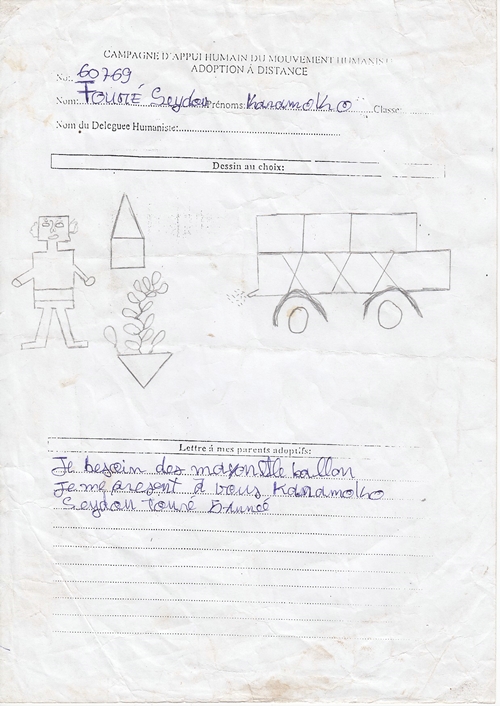 CAMPAGNE D'APPUI HUMAIN DU MOUVEMENT HUMANISTE
ADOPTION À DISTANCE
No.: 60769
Nom: Touré Seydou Prénoms: Karamoko Classe
Nom du Deleguee Humaniste:
Dessin au choix:
Lettre à mes parents adoptifs:
Je besoin des ballon
Je me present à vous Karamoko
Seydou Touré 5 année